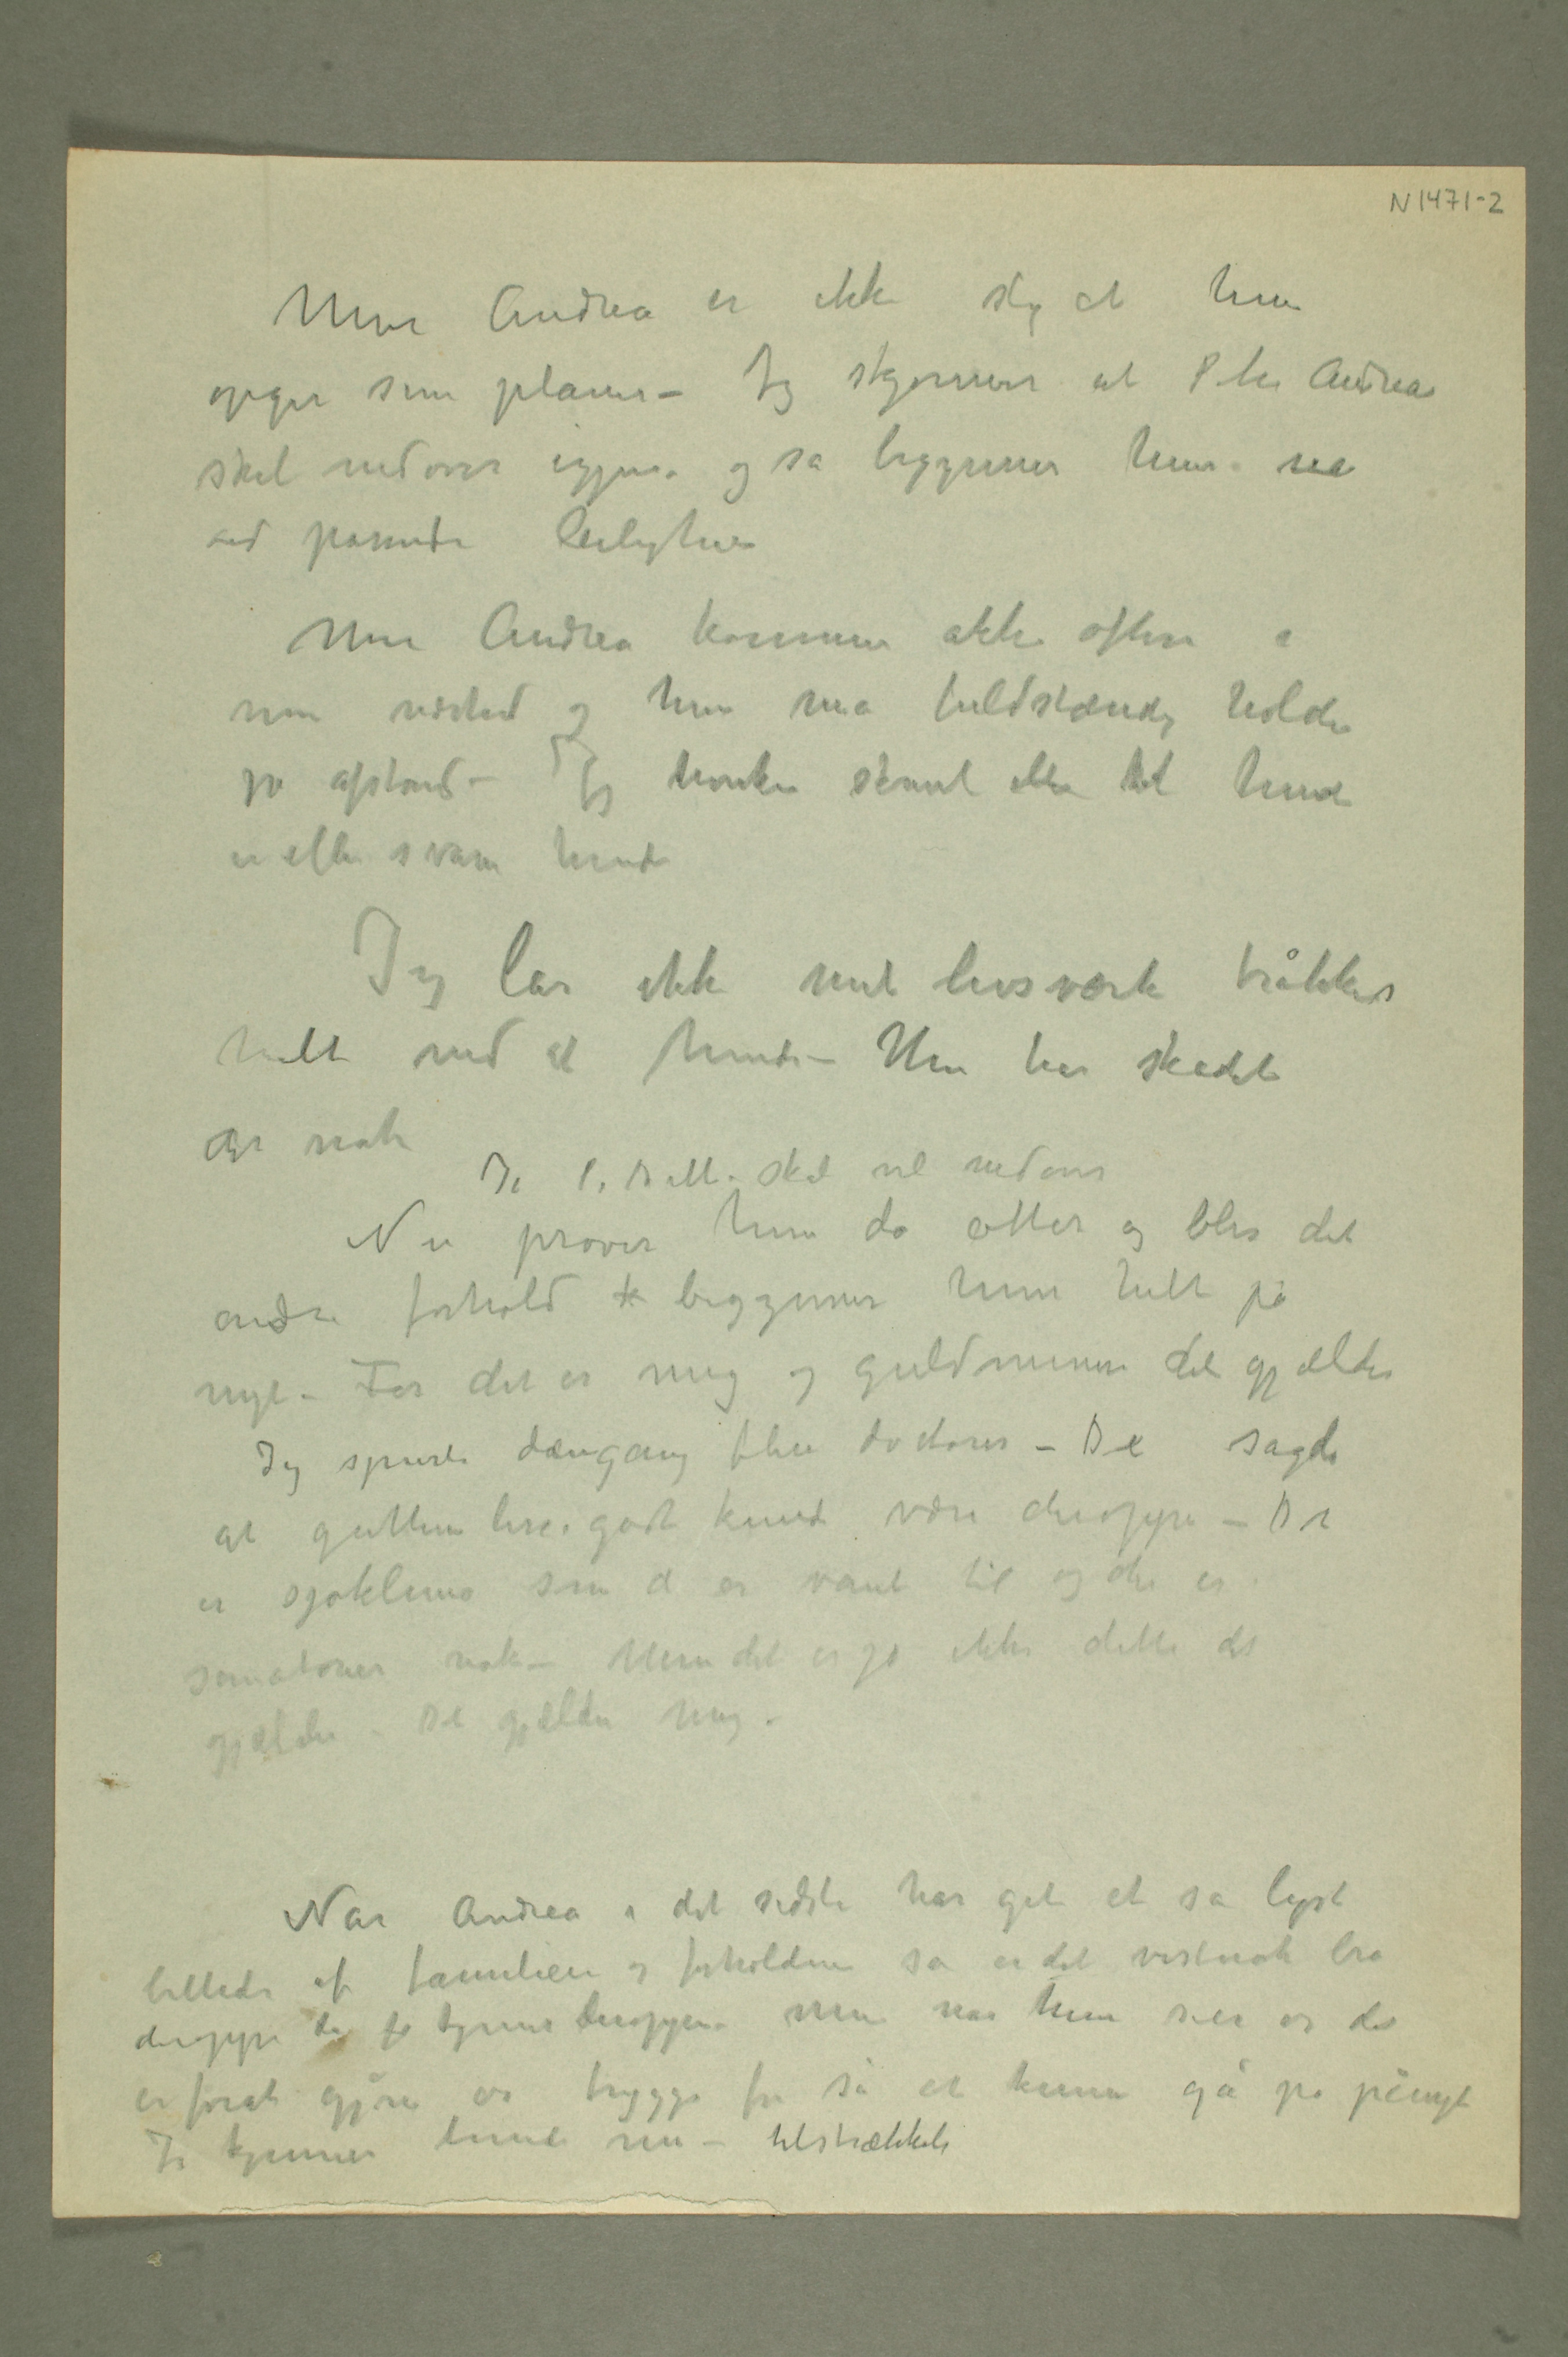 N 1471-2
Men Andrea er ikke slig at hun
opgir sine planer – Jeg skjønner at Andrea
skal nedover igjen og så begynner hun
ved passende Leilighed
Men Andrea kommer ikke oftere i
min nærhed og hun må fuldstændig holdes
på afstand – Jeg tænker såvidt ikke til hende
eller svare hende
Jeg lar ikke mit livsværk tråkkes
helt ned af hende – Hun har skadet
det nok
skal vel nedover
Nu prøver hun da atter og blir det
andre forhold begynner hun helt på
nyt – For det er mig og guldminen det gjælder
Jeg spurte dengang flere doctorer – De sagde
at gutten ligeså godt kunde være deroppe – Det
er sjøklima som de er vant til og der er
sanatorier nok – Men det er jo ikke dette det
gjælder – Det gjælder mig.
Når Andrea i det sidste har git et så lyst
billede af familien og forholdene så er det vistnok bra
deroppe Men når hun sier os det
er for at gjøre os trygge for så at kunne gå på pånyt
Jeg kjenner hende nu – tilstrækkelig